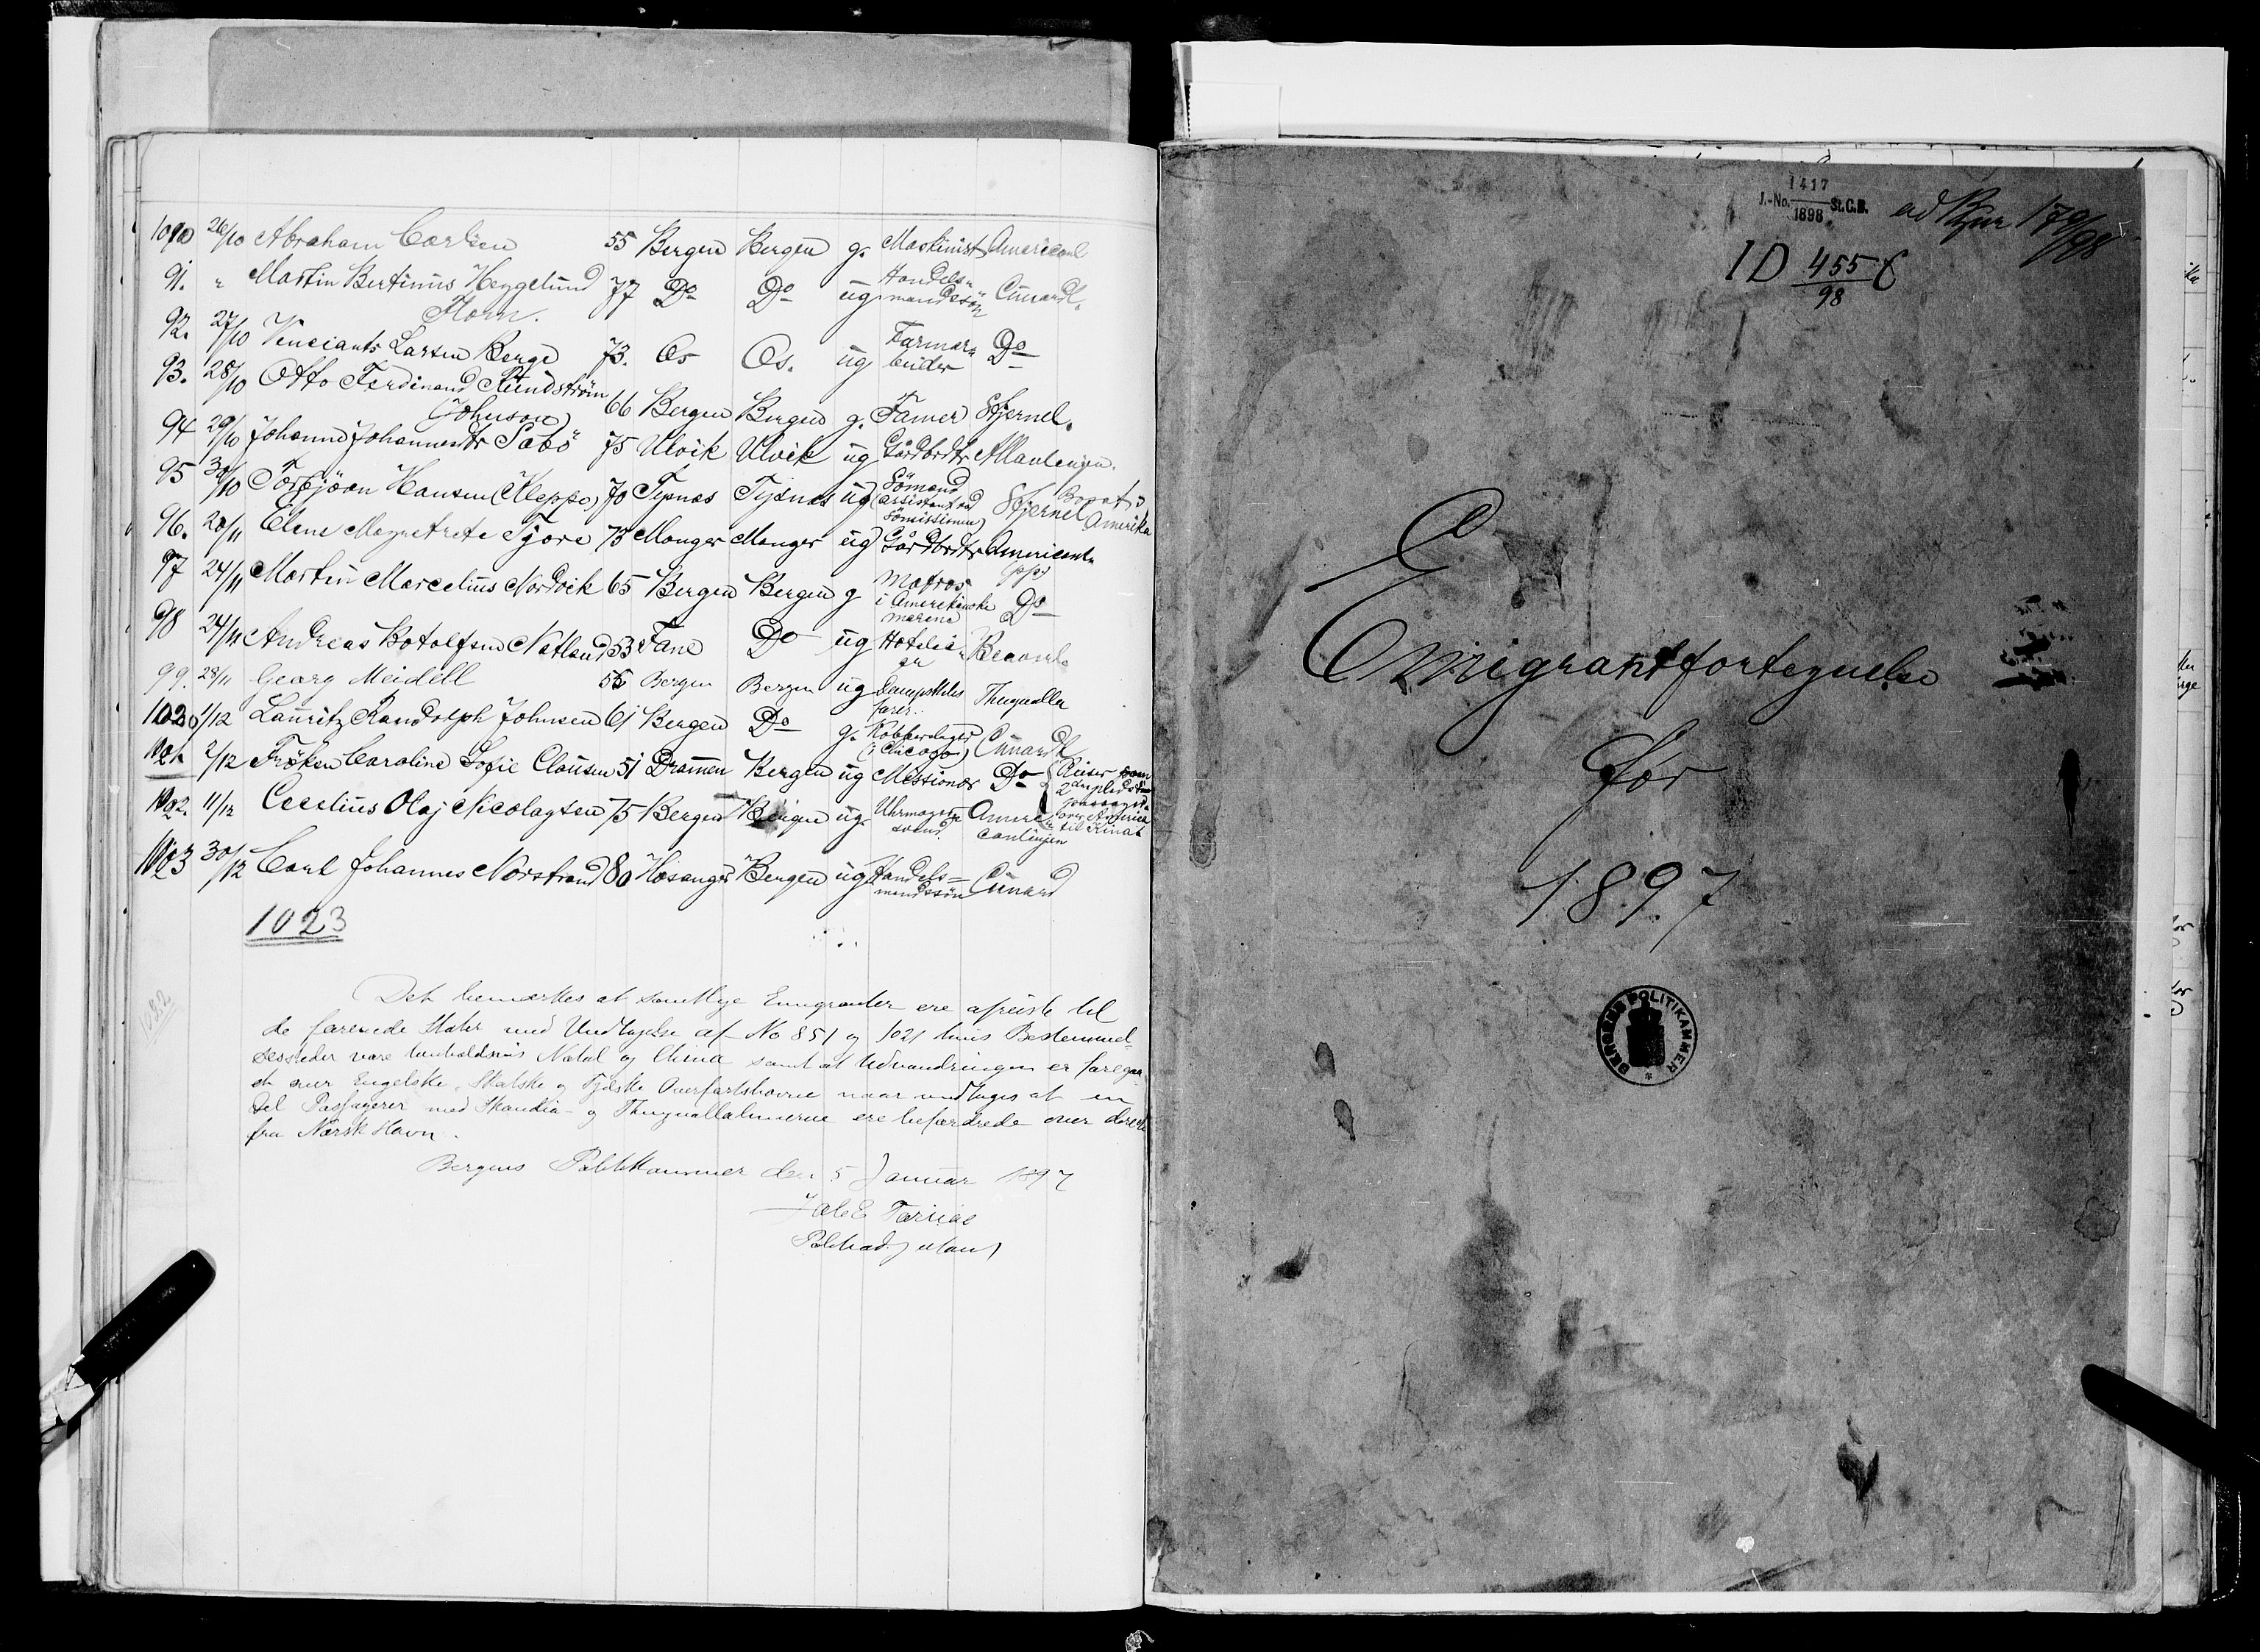 26/10 Abraham Carlsen 55 Bergen Bergen g. Maskinist
91. " Martin Bertinus Heggelund 77 Do Do ug Handels-
Horn. mandssön Cunardl.
92. 27/10 Larsen Berge 73. Os Os. ug Farmar- Do
93. 28/10 Otto Ferdinand
Johnson) 66 Bergen Bergen g. Famer Stjernel.
94 29/10 Johanne 75 Ulvik Ulvik ug Gårdbrdtr
95 30/10 Torbjörn Hansen (Kleppe) 70 Tysnæs Tysnæs ug Sömand
(assistant ved Stjernel Amerika
Sömissionen)
96. 20/11 73 Manger Manger ug Gårdbrdtr
97 24/11 Martin Marcelius Nordvik 65 Bergen Bergen g Matros
i Amerikanske Do
marine
98 24/11 Andreas Botolfsen Natland 53 Fane Do ug
99. 28/11 Georg Meidell Bergen Bergen ug
farer. Thingvalla
1/12 Lauritz Randolph Johnsen 61 Bergen Do g.
(i Chicago) Cunardl
2/12 Fröken Caroline Sofie Clausen 51 Dramen Bergen ug Missionær Do Reiser som
over America
til Kina
11/12 Cecelius Olaj Nicolaysen 75 Bergen Bergen ug. Uhrmager-
svend. canlinjen
30/12 Carl Johannes Norstrand 80 Hosanger Bergen ug Handels-
mandssön Cunard
1023
1082
Det bemærkes at samtlige Emigranter ere afreiste til
de forenede Stater med Undtagelse af No 851 og 1021 hvis Bestemmel-
sessteder vare henholdsvis Natal og China samt at Udvandringen er foregaa-
et over Engelske, Skotske og Tydske Overfartshavne naar undtages at en
Del Passagerer med Skandia- og Thingvallalinierne ere befordrede over directe
fra Norsk Havn.
Bergens Politikammer den 5 Januar 1897
1417
J.-No. St.C.B.
1898
ad 179/98
ID 455
98
Emigrantfortegnelse
for
1897
BERGENS POLITIKAMMER